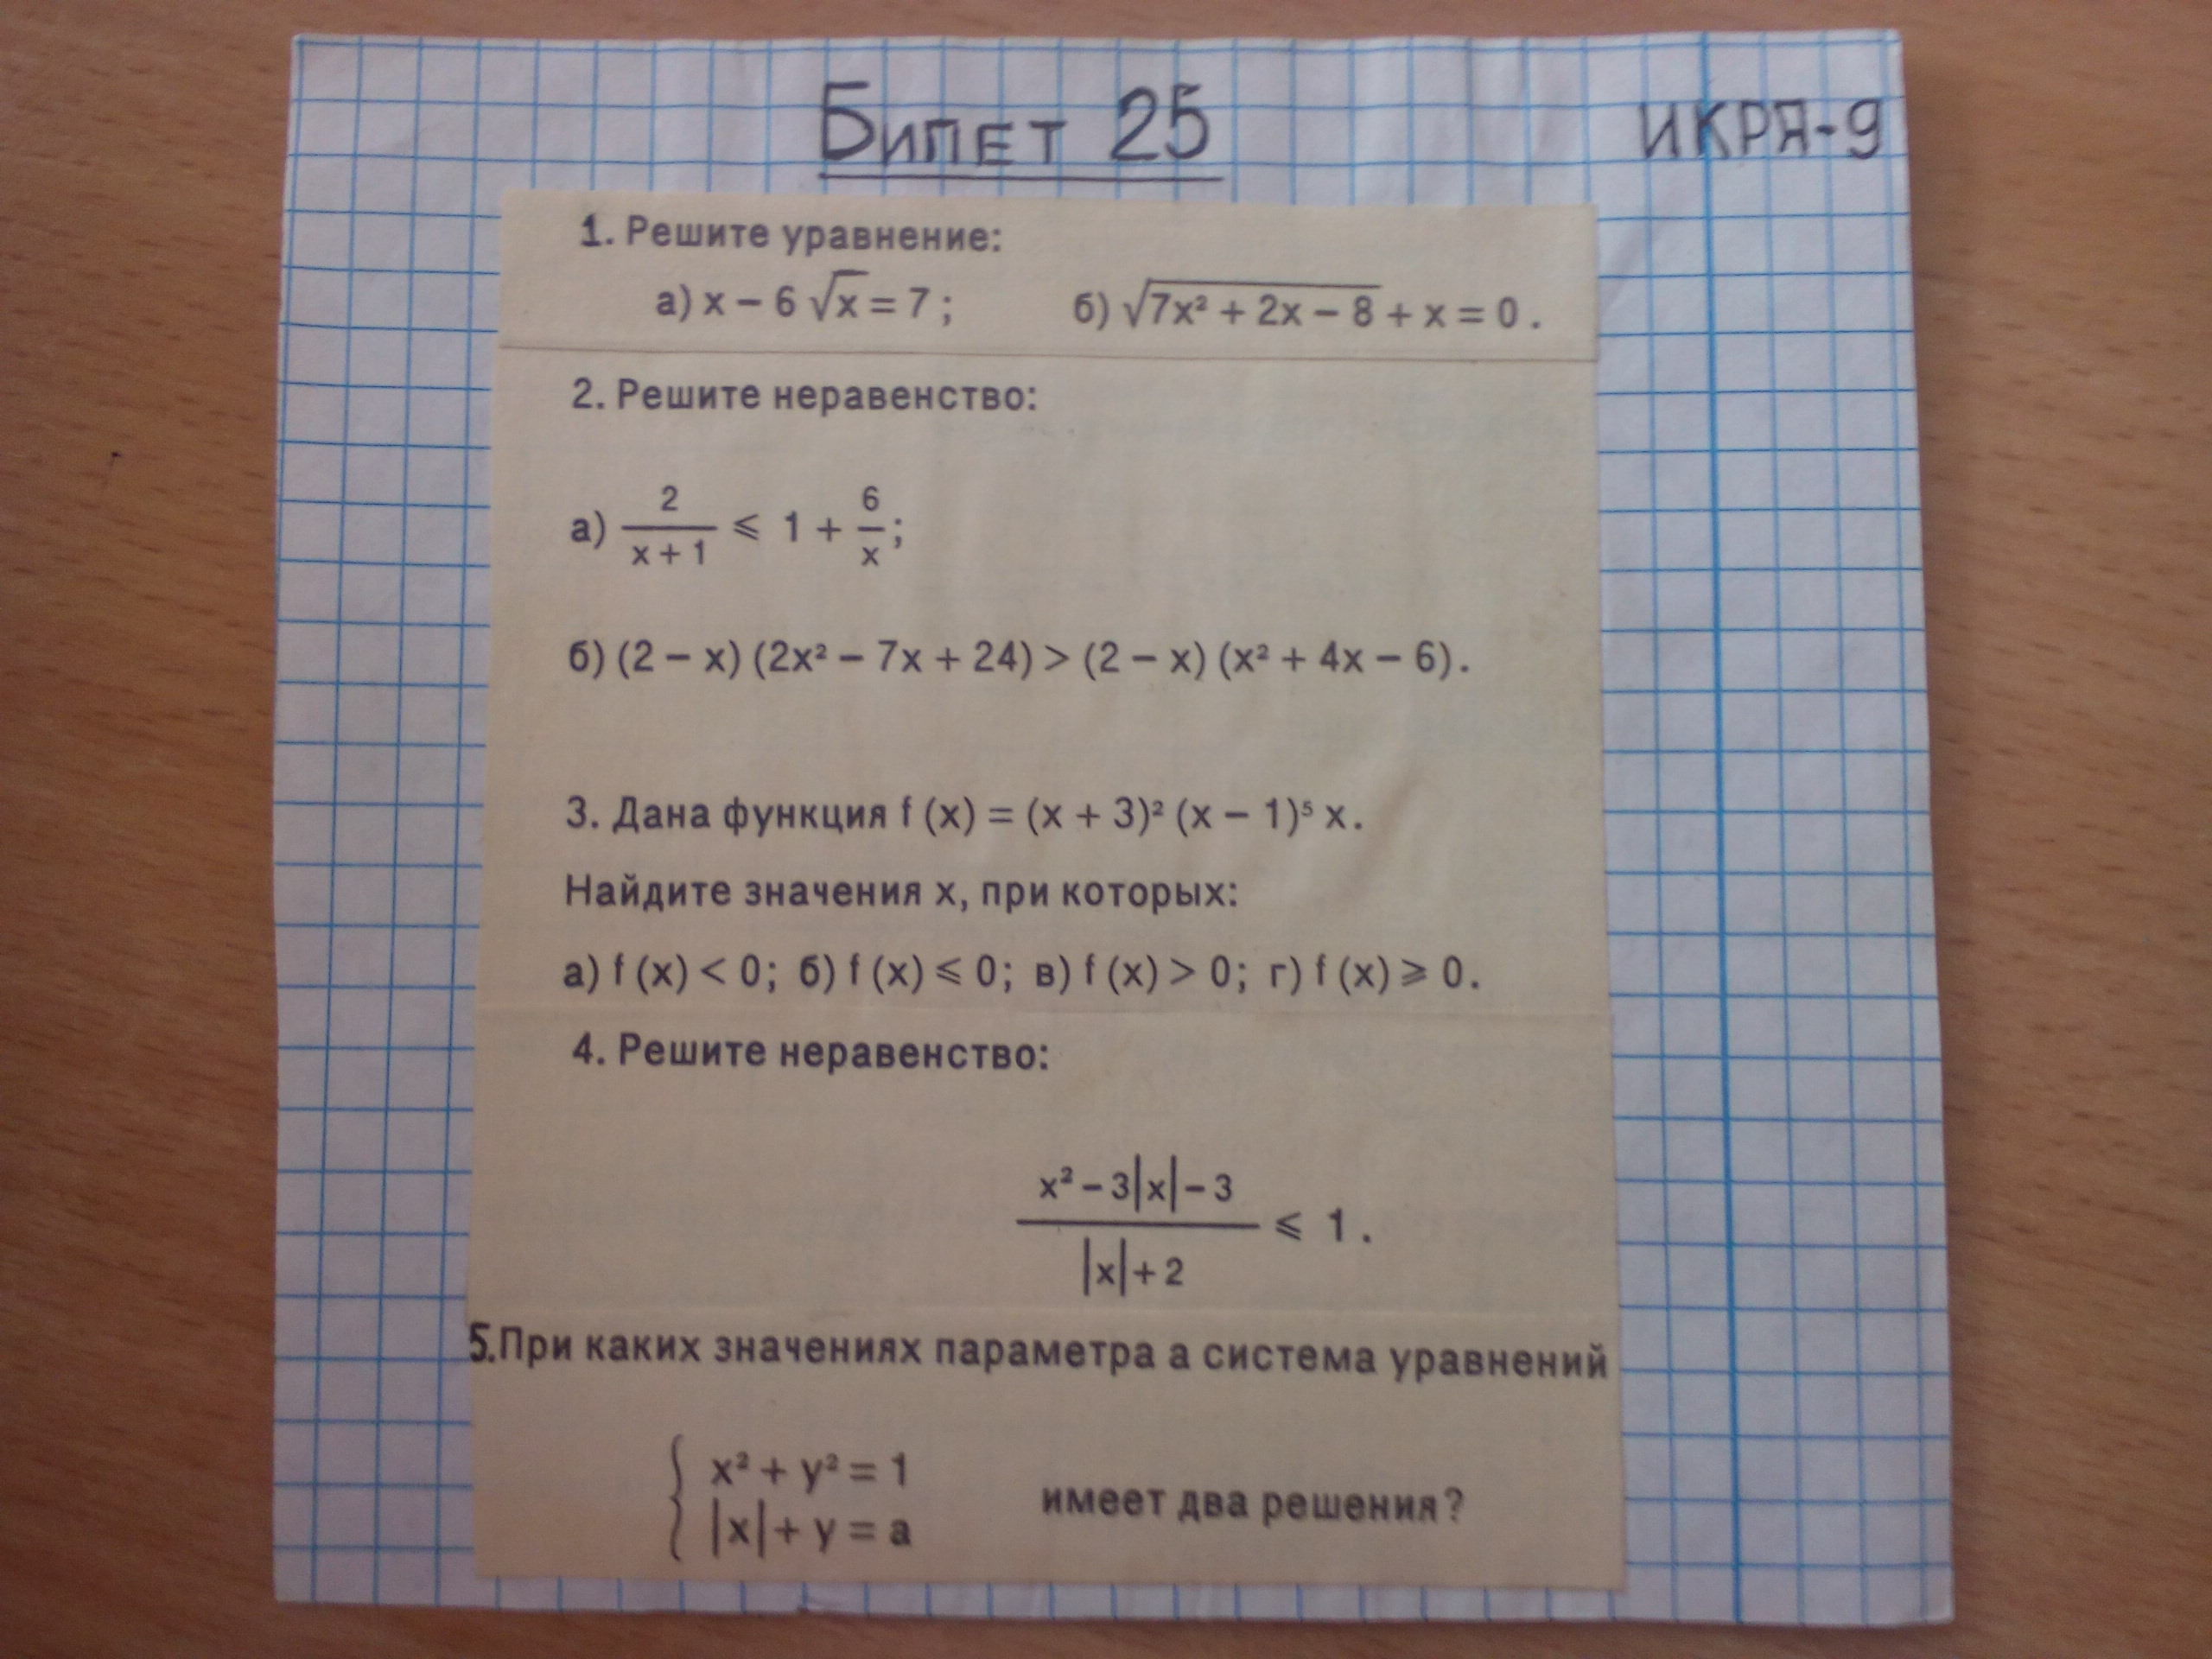 Билет 25
ИКРЯ-9
1. Решите уравнение:
а) x – 6 √x = 7 ; б) √7x² + 2x – 8 + x = 0 .
2. Решите неравенство:
а) 2/(x + 1) ⩽ 1 + 6/x ;
б) (2 – x) (2x² – 7x + 24) > (2 – x) (x² + 4x – 6) .
3. Дана функция f (x) = (x + 3)² (x – 1)⁵ x .
Найдите значения x, при которых:
а) f (x) < 0; б) f (x) ⩽ 0; в) f (x) > 0; г) f (x) ⩾ 0 .
4. Решите неравенство:
(x² – 3|x| – 3)/(|x| + 2) ⩽ 1 .
5. При каких значениях параметра а система уравнений
{ x² + y² = 1
|x| + y = a имеет два решения?